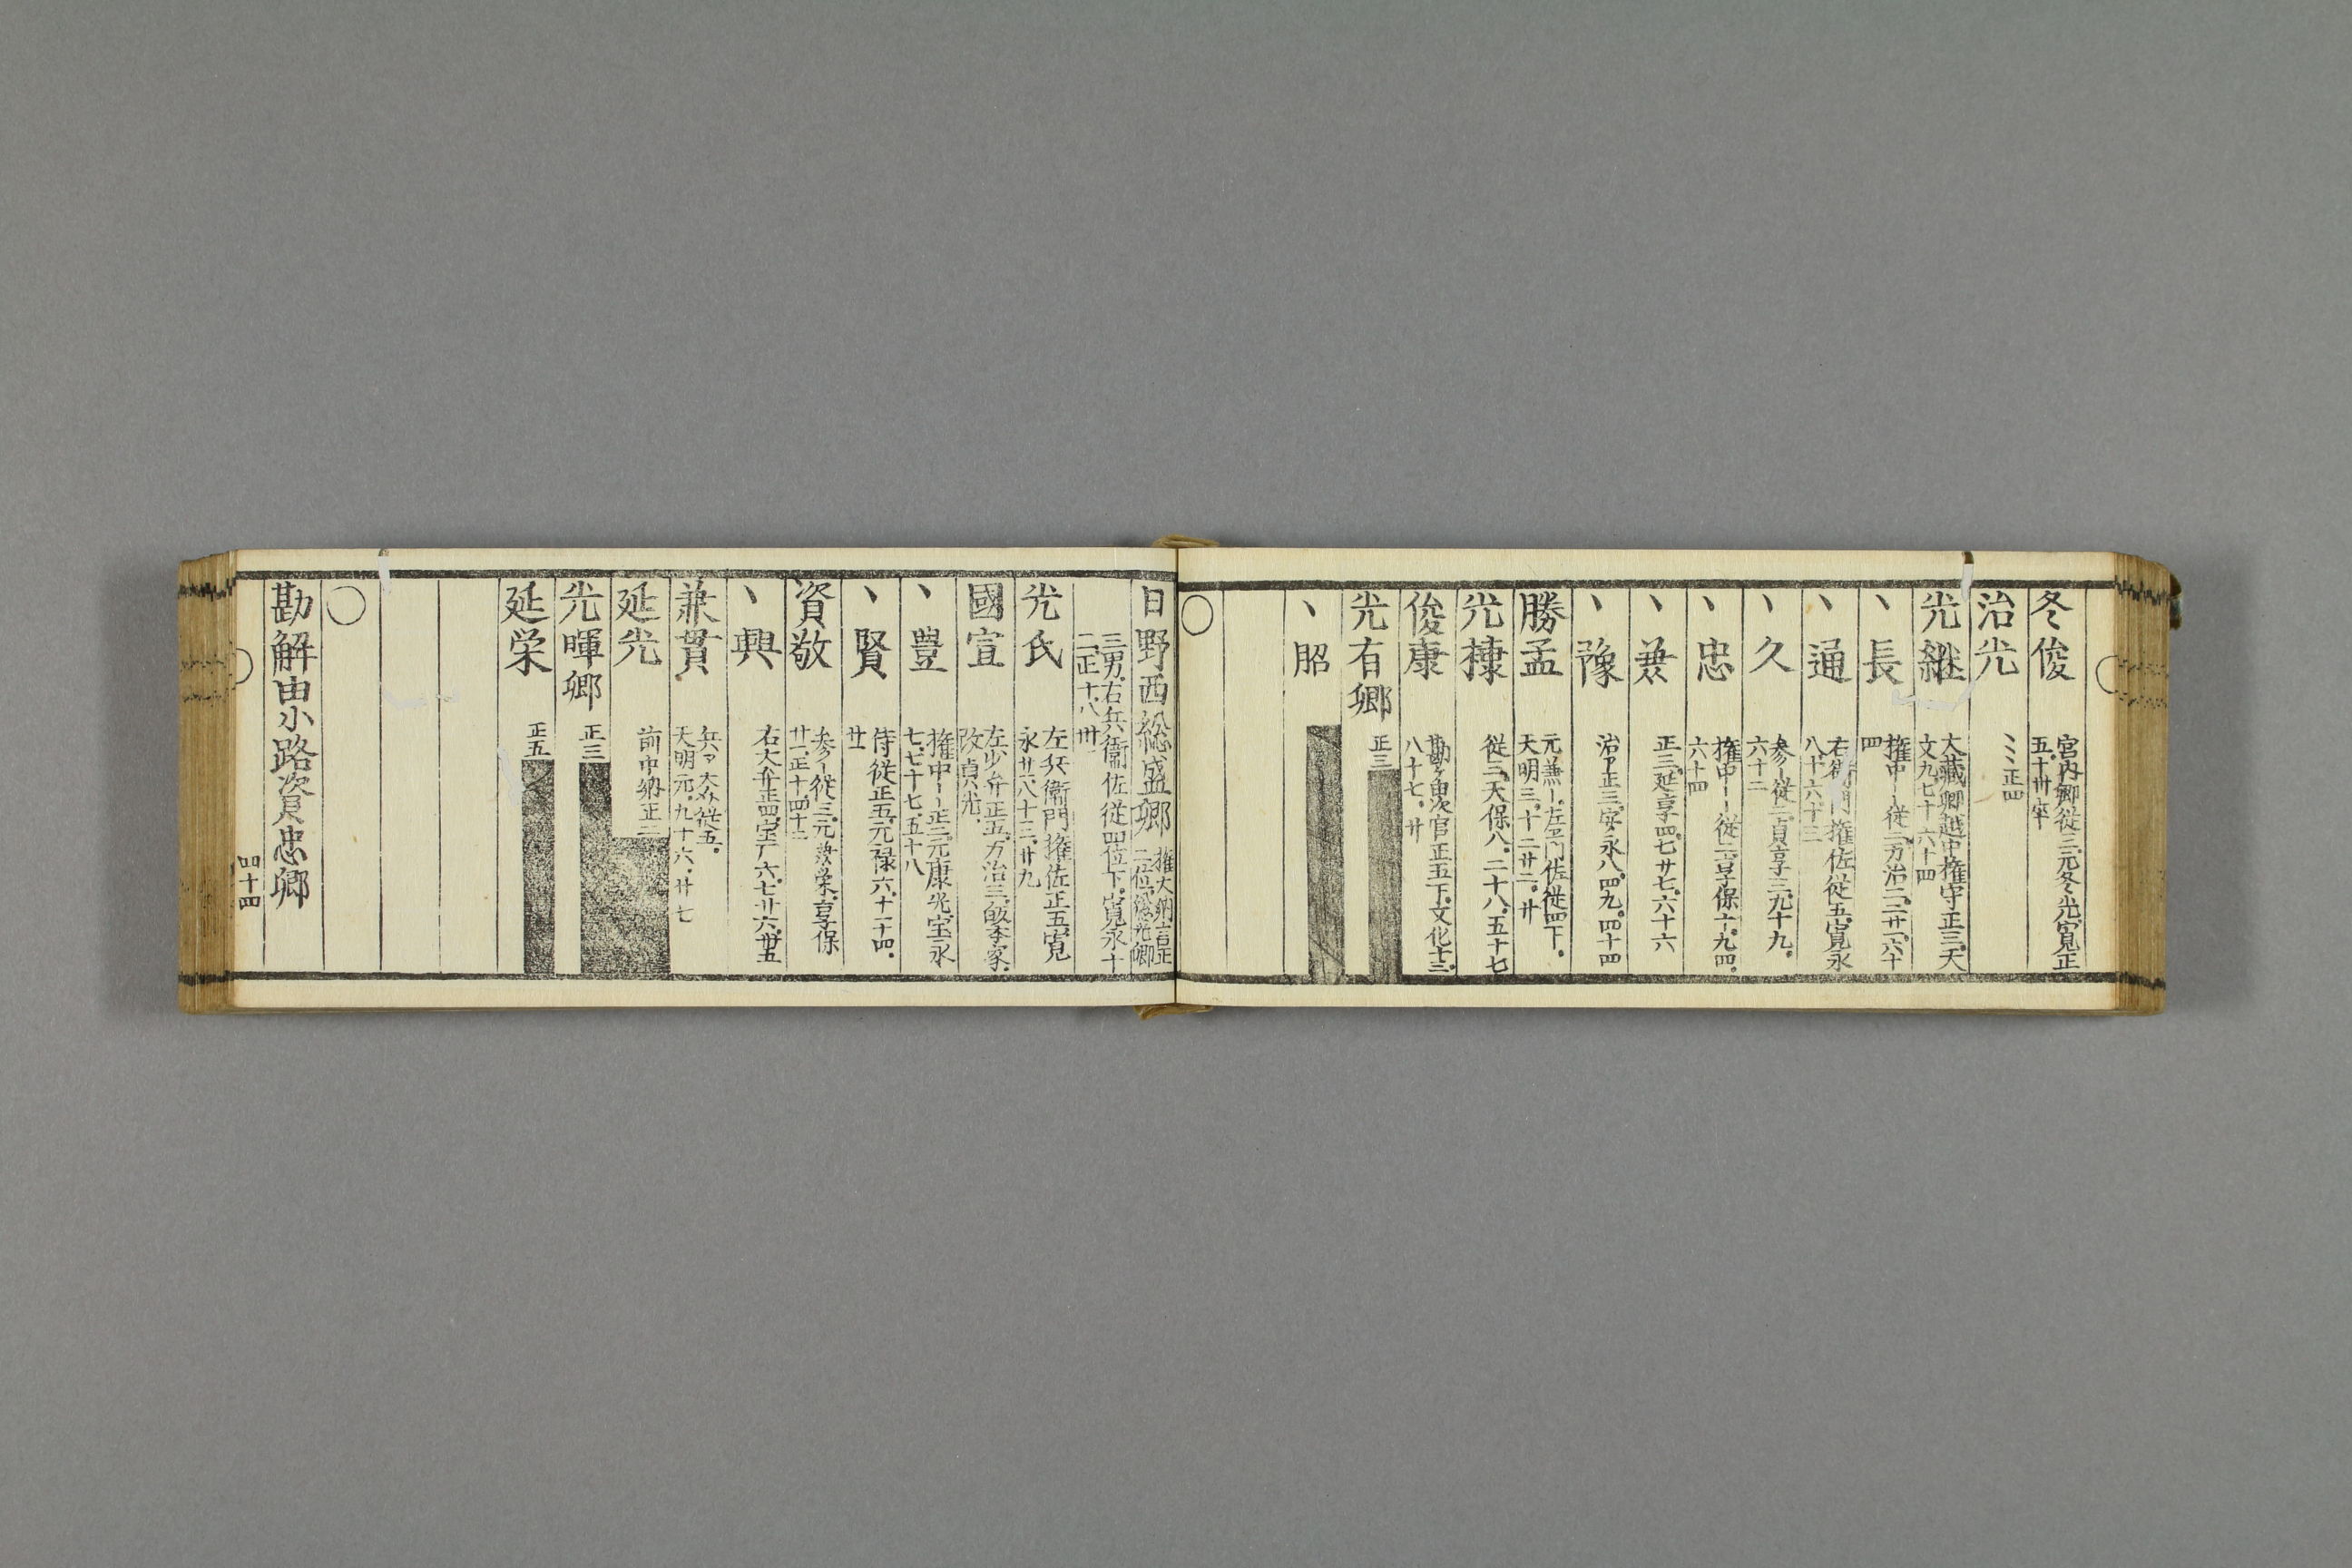 冬俊 宮内卿従三元冬光寛正
五十卅卒
治光 〻〻正四
光継 大蔵卿越中権守正三天
文九七十六十四
丶長 権中ー従二万治二二廿一六十
四
丶通 右衛門権佐従五寛永
八十六十三
丶久 参ー従三貞享三九十九
六十二
丶忠 権中ー従二享保十九四
六十四
丶兼 正三延享四七廿七六十六
丶豫 治ア正三安永八四九四十四
勝孟 元兼ー左ヱ門佐従四下
天明三十二廿二廿
光棣 従三天保八二十八五十七
俊康 勘ケ由次官正五下文化十三
八十七廿
光有卿 正三
丶昭
〇
日野西総盛卿 権大納言正
二位光卿
三男右兵衛佐従四位下寛永十
二正十八卅一
光氏 左兵衛門権佐正五寛
永廿八十三廿九
國宣 左少弁正五万治三放李家
改貞光
丶豊 権中ー正二元康光宝永
七七十七五十八
丶賢 侍従正五元禄六十一十四
廿
資敬 参ー従三元兼栄享保
廿一正十四十二
丶興 右大弁正四宝厂六七廿六廿五
兼貫 兵ア大ゟ従五
天明元九十六廿七
延光 前中納正二
光暉卿 正三
延栄 正五
〇
勘解由小路資忠卿
四十四